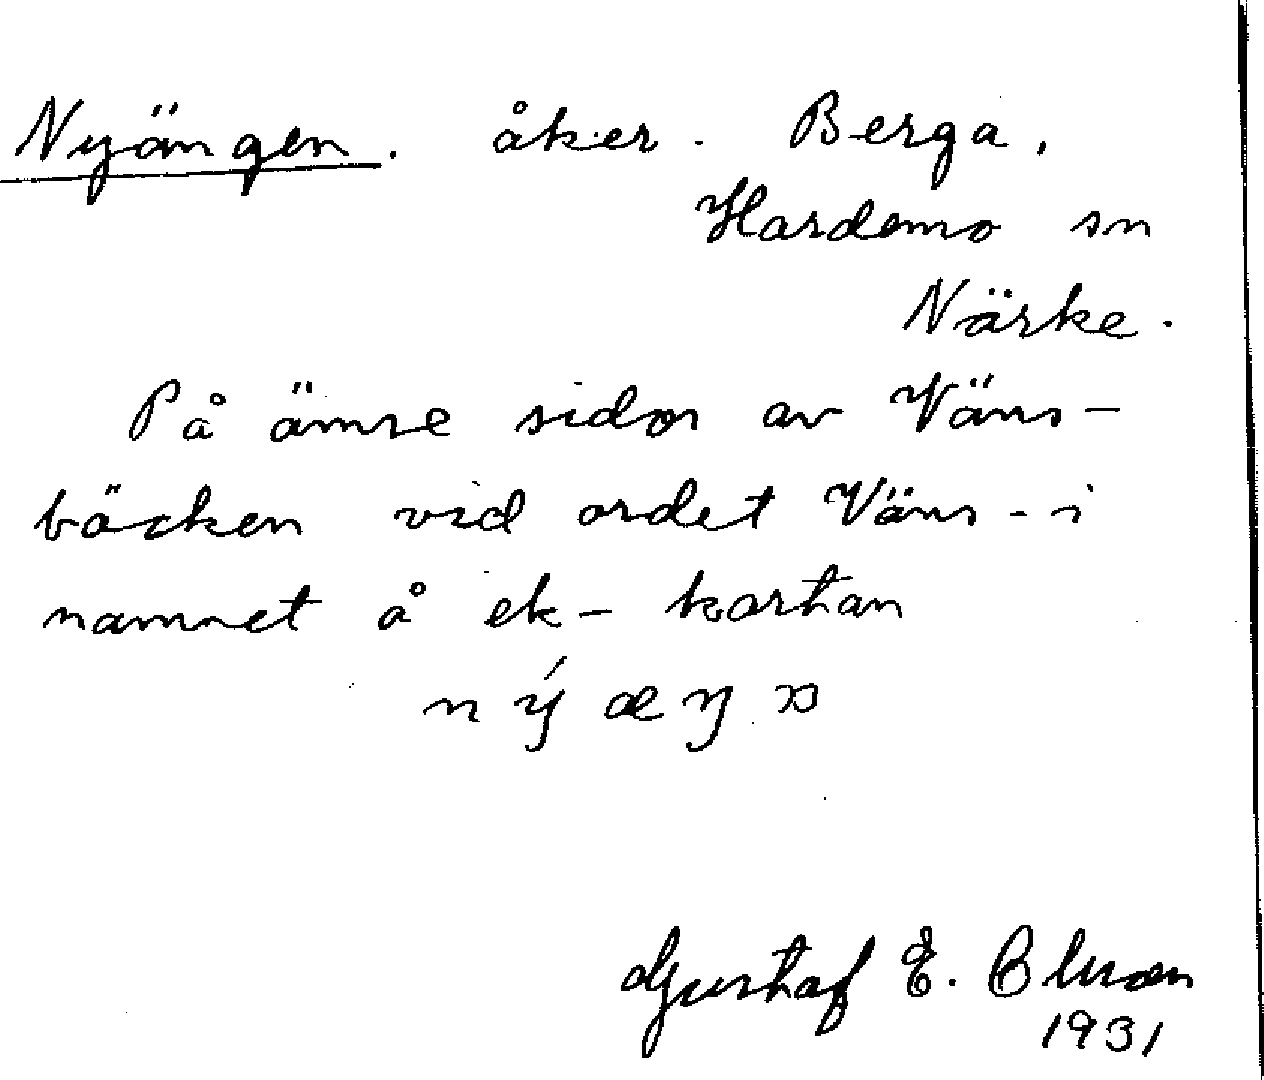 Nyängen. åker. Berga,
Hardemo sn
Närke.
På ömse sidor av Väns-
bäcken vid ordet Väns- i
namnet å ek- kartan
Gustaf E.
1931